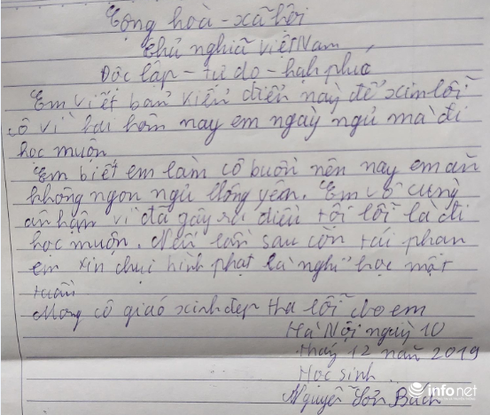 Cộng hoà - xã hội
Chủ nghĩa Việt Nam
Độc lập - tự do - hạnh phúc
Em viết bản kiểm điểm này để xin lỗi
cô vì hai hôm nay em ngày ngủ mà đi
học muộn
Em biết em làm cô buồn nên nay em ăn
không ngon ngủ không yên. Em vô cùng
ân hận vì đã gây ra điều tội lỗi là đi
học muộn. Nếu lần sau còn tái phạm
em xin chịu hình phạt là nghỉ học một
tuần
Mong cô giáo xinh đẹp tha lỗi cho em
Hà Nội ngày 10
tháng 12 năm 2019
Học sinh
Nguyễn Sơn Bách
infonet